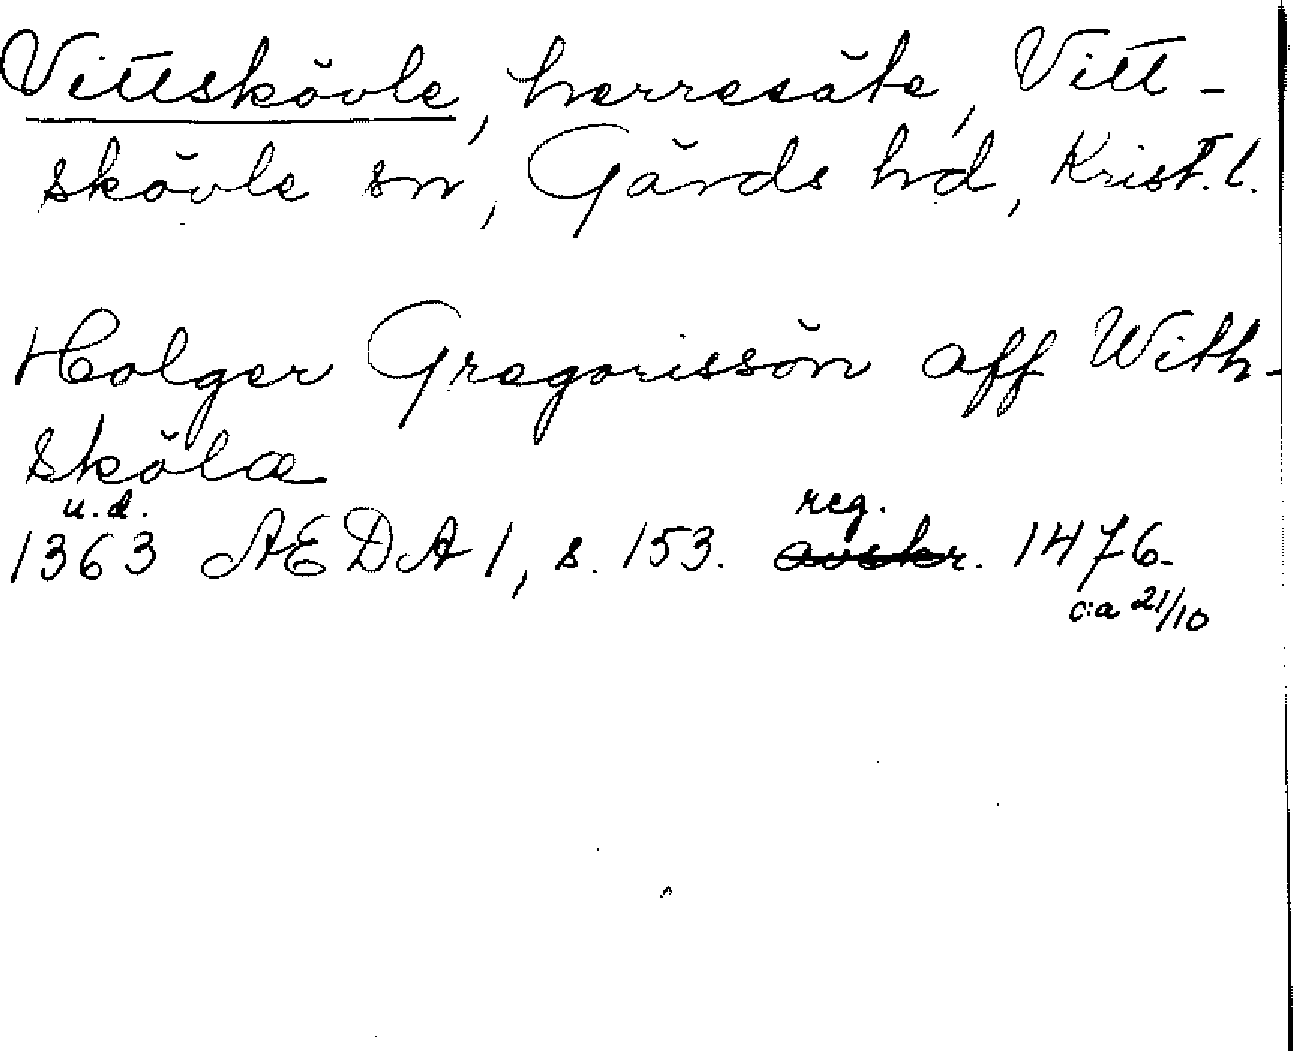 Vittskövle, herresäte, Vitt-
skövle sn, Gärds hd, Krist. l.
Holger Gregorissön aff With-
skölæ
u.d.
reg.
1363 AEDA 1, s. 153. avskr. 1476.
c:a 21/10